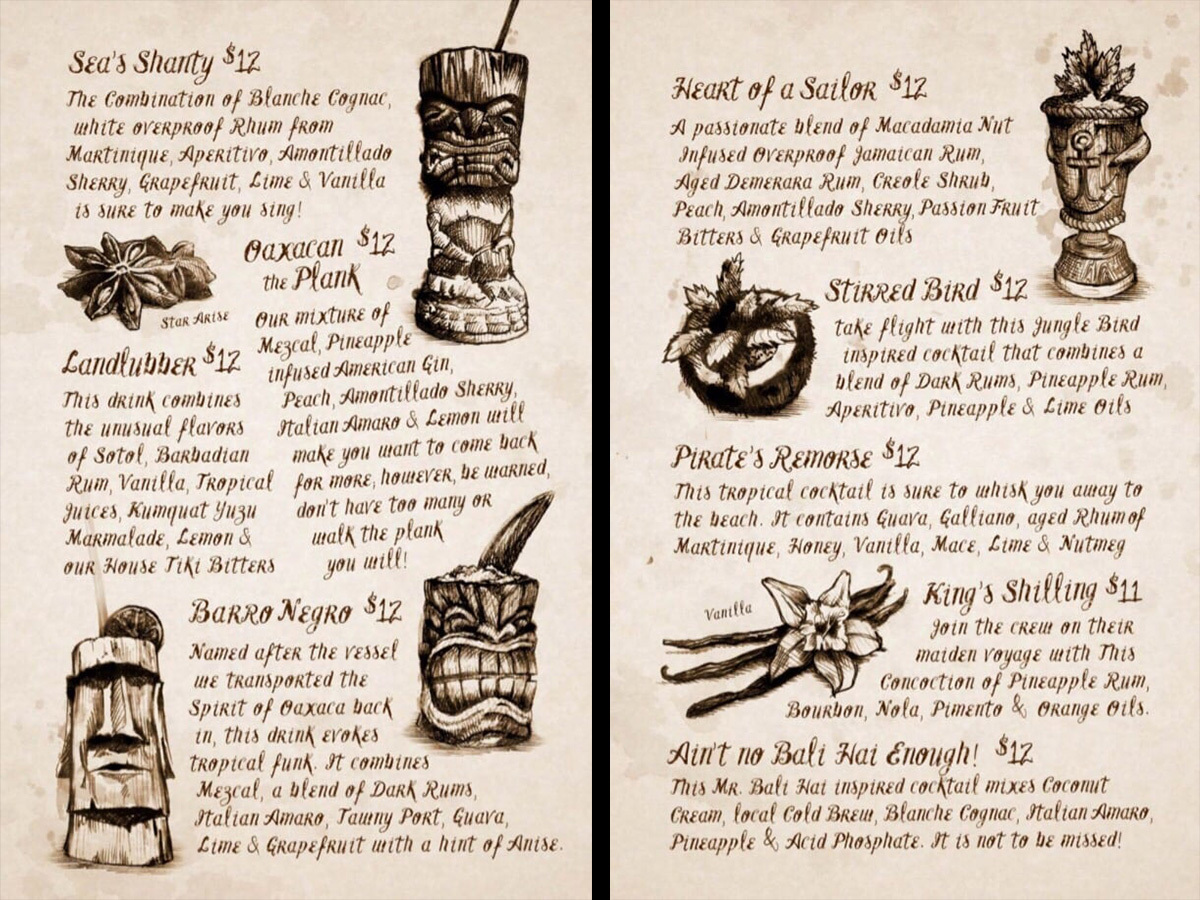 Sea's Shanty $12
The Combination of Blanche Cognac,
white overproof Rhum from
Martinique, Aperitivo, Amontillado
Sherry, Grapefruit, Lime & Vanilla
is sure to make you sing!
Star Arise
Oaxacan $12
the Plank
Our mixture of
Mezcal, Pineapple
infused American Gin,
Peach, Amontillado Sherry,
Italian Amaro & Lemon will
make you want to come back
for more, however, be warned,
don't have too many or
walk the plank
you will!
Landlubber $12
This drink combines
the unusual flavors
of Sotol, Barbadian
Rum, Vanilla, Tropical
Juices, Kumquat Yuzu
Marmalade, Lemon &
our House Tiki Bitters
Barro Negro $12
Named after the vessel
we transported the
Spirit of Oaxaca back
in, this drink evokes
tropical funk. It combines
Mezcal, a blend of Dark Rums,
Italian Amaro, Tawny Port, Guava,
Lime & Grapefruit with a hint of Anise.
Heart of a Sailor $12
A passionate blend of Macadamia Nut
Infused Overproof Jamaican Rum,
Aged Demerara Rum, Creole Shrub,
Peach, Amontillado Sherry, Passion Fruit
Bitters & Grapefruit Oils
Stirred Bird $12
take flight with this Jungle Bird
inspired cocktail that combines a
blend of Dark Rums, Pineapple Rum,
Aperitivo, Pineapple & Lime Oils
Pirate's Remorse $12
This tropical cocktail is sure to whisk you away to
the beach. It contains Guava, Galliano, aged Rhum of
Martinique, Honey, Vanilla, Mace, Lime & Nutmeg
Vanilla
King's Shilling $11
Join the crew on their
maiden voyage with This
Concoction of Pineapple Rum,
Bourbon, Nola, Pimento & Orange Oils.
Ain't no Bali Hai Enough! $12
This Mr. Bali Hai inspired cocktail mixes Coconut
Cream, local Cold Brew, Blanche Cognac, Italian Amaro,
Pineapple & Acid Phosphate. It is not to be missed!